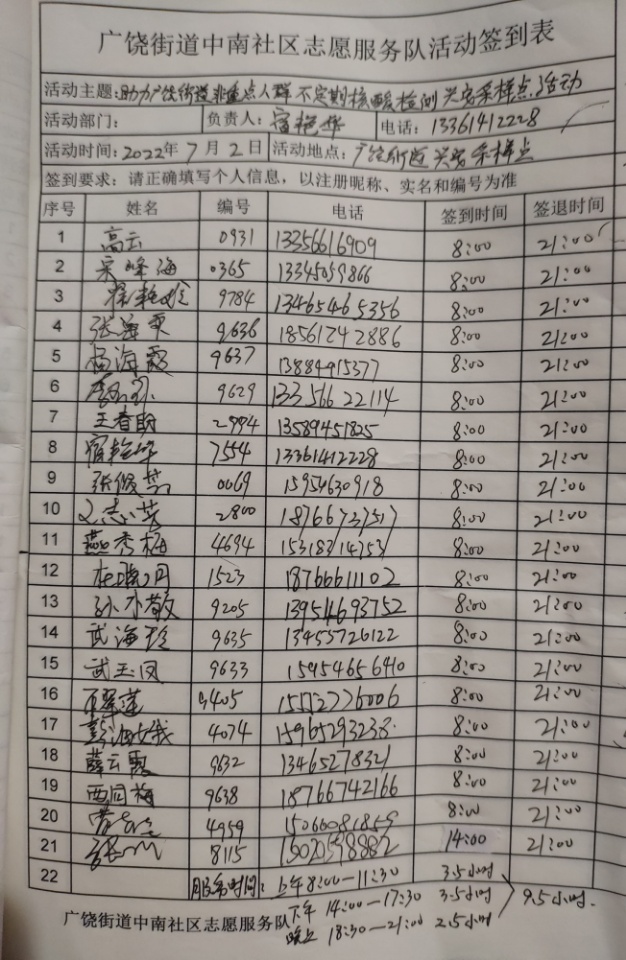 广饶街道中南社区志愿服务队活动签到表
活动主题:助力广饶街道非重点人群不定期核酸检测兴安采样点活动
活动部门: 负责人:宿艳华 电话:13361412228
活动时间:2022年7月2日 活动地点:广饶街道兴安采样点
签到要求:请正确填写个人信息,以注册昵称、实名和编号为准
序号 姓名 编号 电话 签到时间 签退时间
1 高云 0931 13356616909 8:00 21:00
2 宋峰海 0365 13345059866 8:00 21:00
3 9784 13465465356 8:00 21:00
4 9636 18561242886 8:00 21:00
5 杨海霞 9637 13884915377 8:00 21:00
6 9629 13356622114 8:00 21:00
7 王春盼 2994 13589451825 8:00 21:00
8 宿艳华 7554 13361412228 8:00 21:00
9 0069 15954630918 8:00 21:00
10 2800 18766737517 8:00 21:00
11 燕秀梅 4694 15318314753 8:00 21:00
12 1523 18766611102 8:00 21:00
13 9205 13954693752 8:00 21:00
14 武海珍 9635 13455726122 8:00 21:00
15 武玉凤 9633 15954656410 8:00 21:00
16 9405 15552776006 8:00 21:00
17 彭海娥 4074 15965293238 8:00 21:00
18 薛云霞 9632 13465278321 8:00 21:00
19 西同梅 9638 18766742166 8:00 21:00
20 4959 15066081859 8:00 21:00
21 8115 15020598882 14:00 21:00
22 服务时间:上午8:00—11:30 3.5小时
广饶街道中南社区志愿服务队 下午 14:00—17:30 3.5小时 9.5小时.
晚上 18:30—21:00 2.5小时